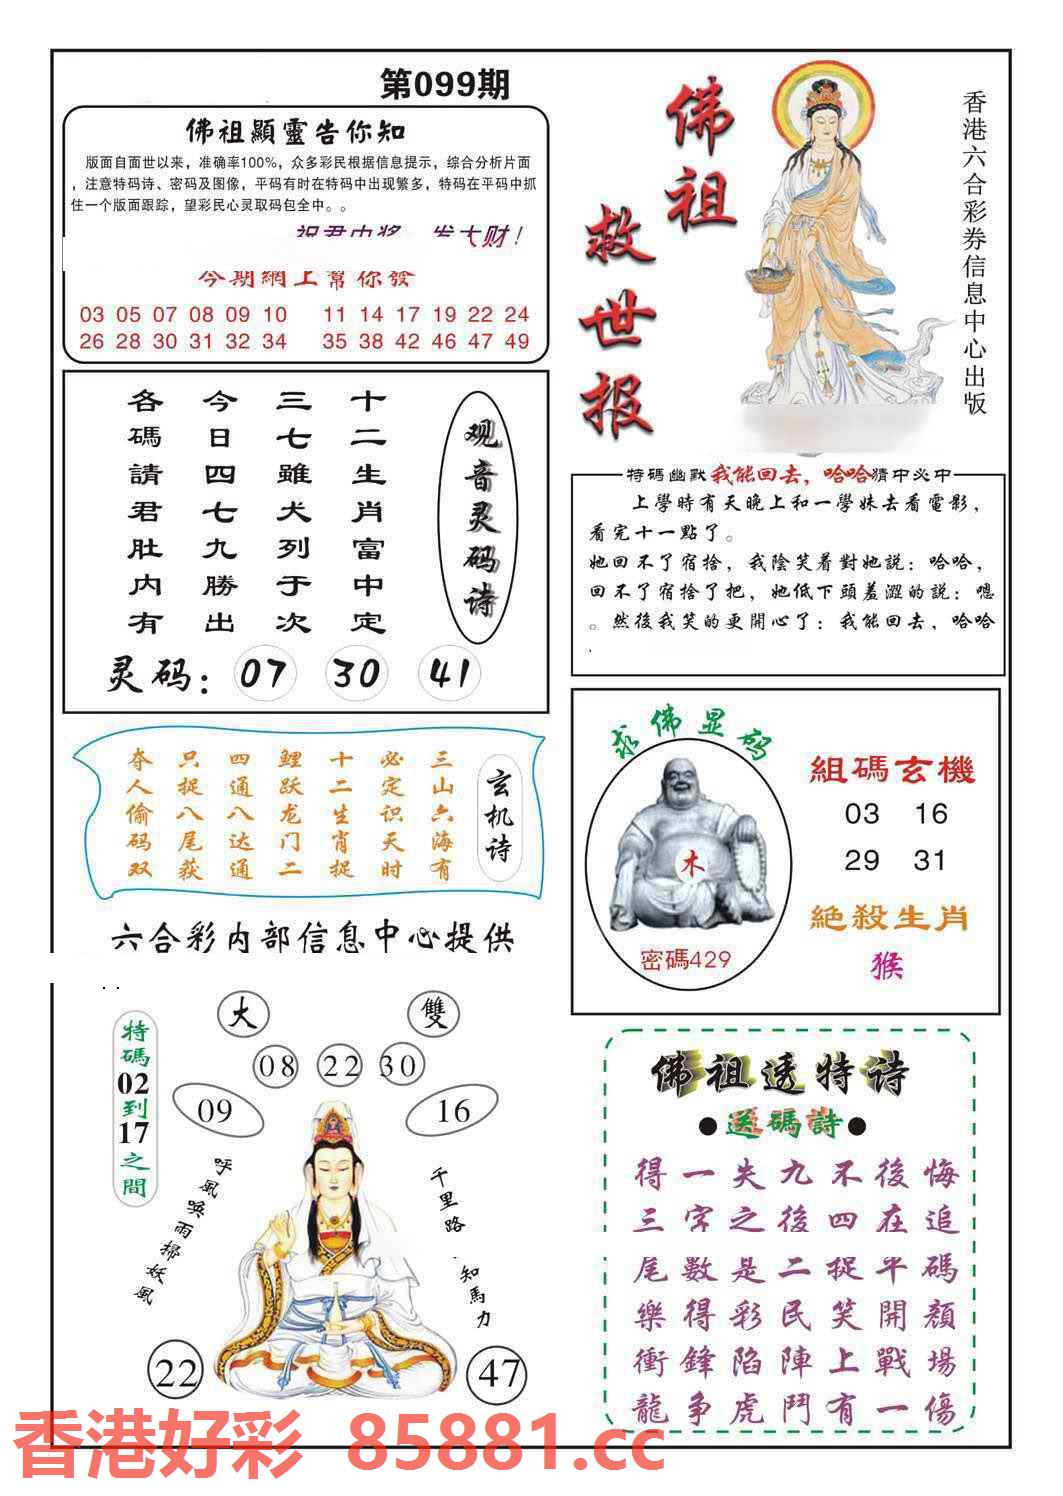 第099期
佛祖顯靈告你知
版面自面世以来，准确率100%，众多彩民根据信息提示，综合分析片面
，注意特码诗、密码及图像，平码有时在特码中出现繁多，特码在平码中抓
住一个版面跟踪，望彩民心灵取码包全中。。
祝君中奖 发大财！
今期網上幫你發
03 05 07 08 09 10 11 14 17 19 22 24
26 28 30 31 32 34 35 38 42 46 47 49
佛祖
救世报
香港六合彩券信息中心出版
观音灵码诗
十二生肖富中定
三七雖犬列于次
今日四七九勝出
各碼請君肚内有
灵码：07 30 41
特碼幽默我能回去，哈哈猜中必中
上學時有天晚上和一學妹去看電影，
看完十一點了。
她回不了宿捨，我陰笑着對她説：哈哈，
回不了宿捨了把，她低下頭羞澀的説：嗯
。然後我笑的更開心了：我能回去，哈哈
.
玄机诗
三山六海有
必定识天时
十二生肖捉
鲤跃龙门二
四通八达通
只捉八尾获
夺人偷码双
六合彩内部信息中心提供
求佛显码
木
密碼429
組碼玄機
03 16
29 31
絶殺生肖
猴
大
雙
08 22 30
09
16
特碼02到17之間
呼風唤雨掃妖風
千里路 知馬力
22
47
佛祖透特诗
●送碼詩●
得一失九不後悔
三字之後四在追
尾數是二捉平碼
樂得彩民笑開顔
衝鋒陷陣上戰場
龍争虎鬥有一傷
香港好彩 85881.cc